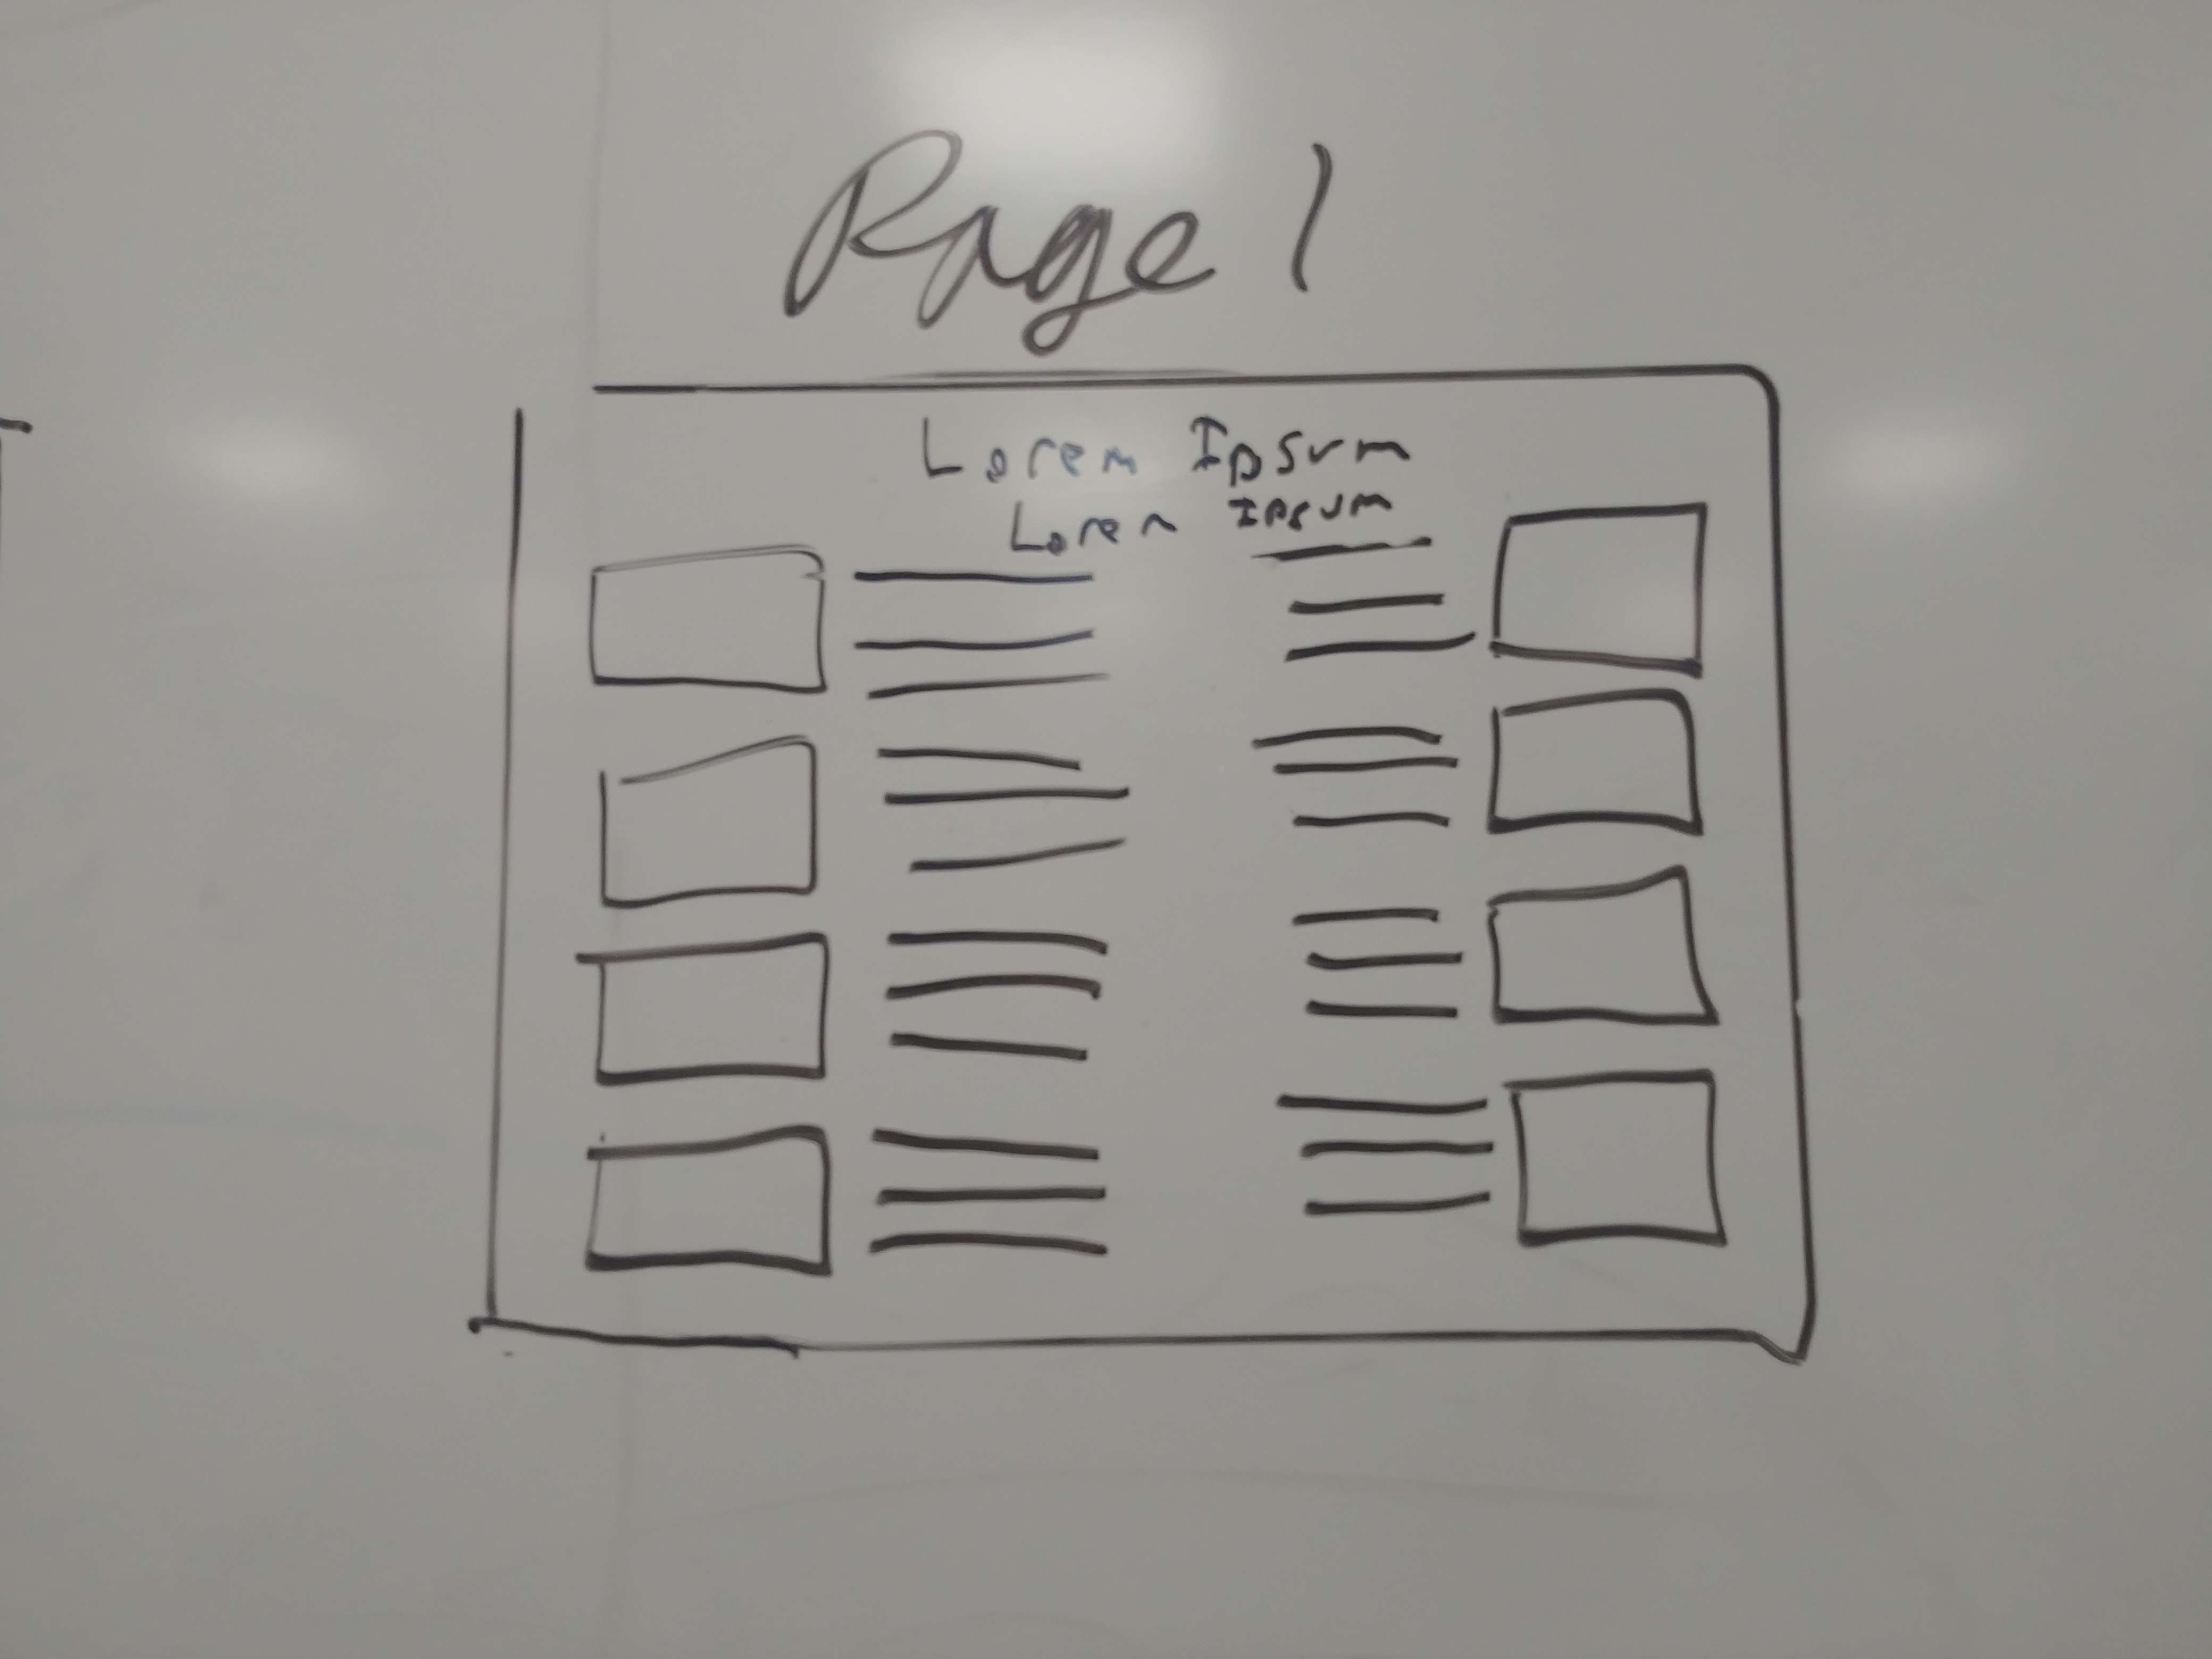 Page 1
Lorem Ipsum
Lorem Ipsum